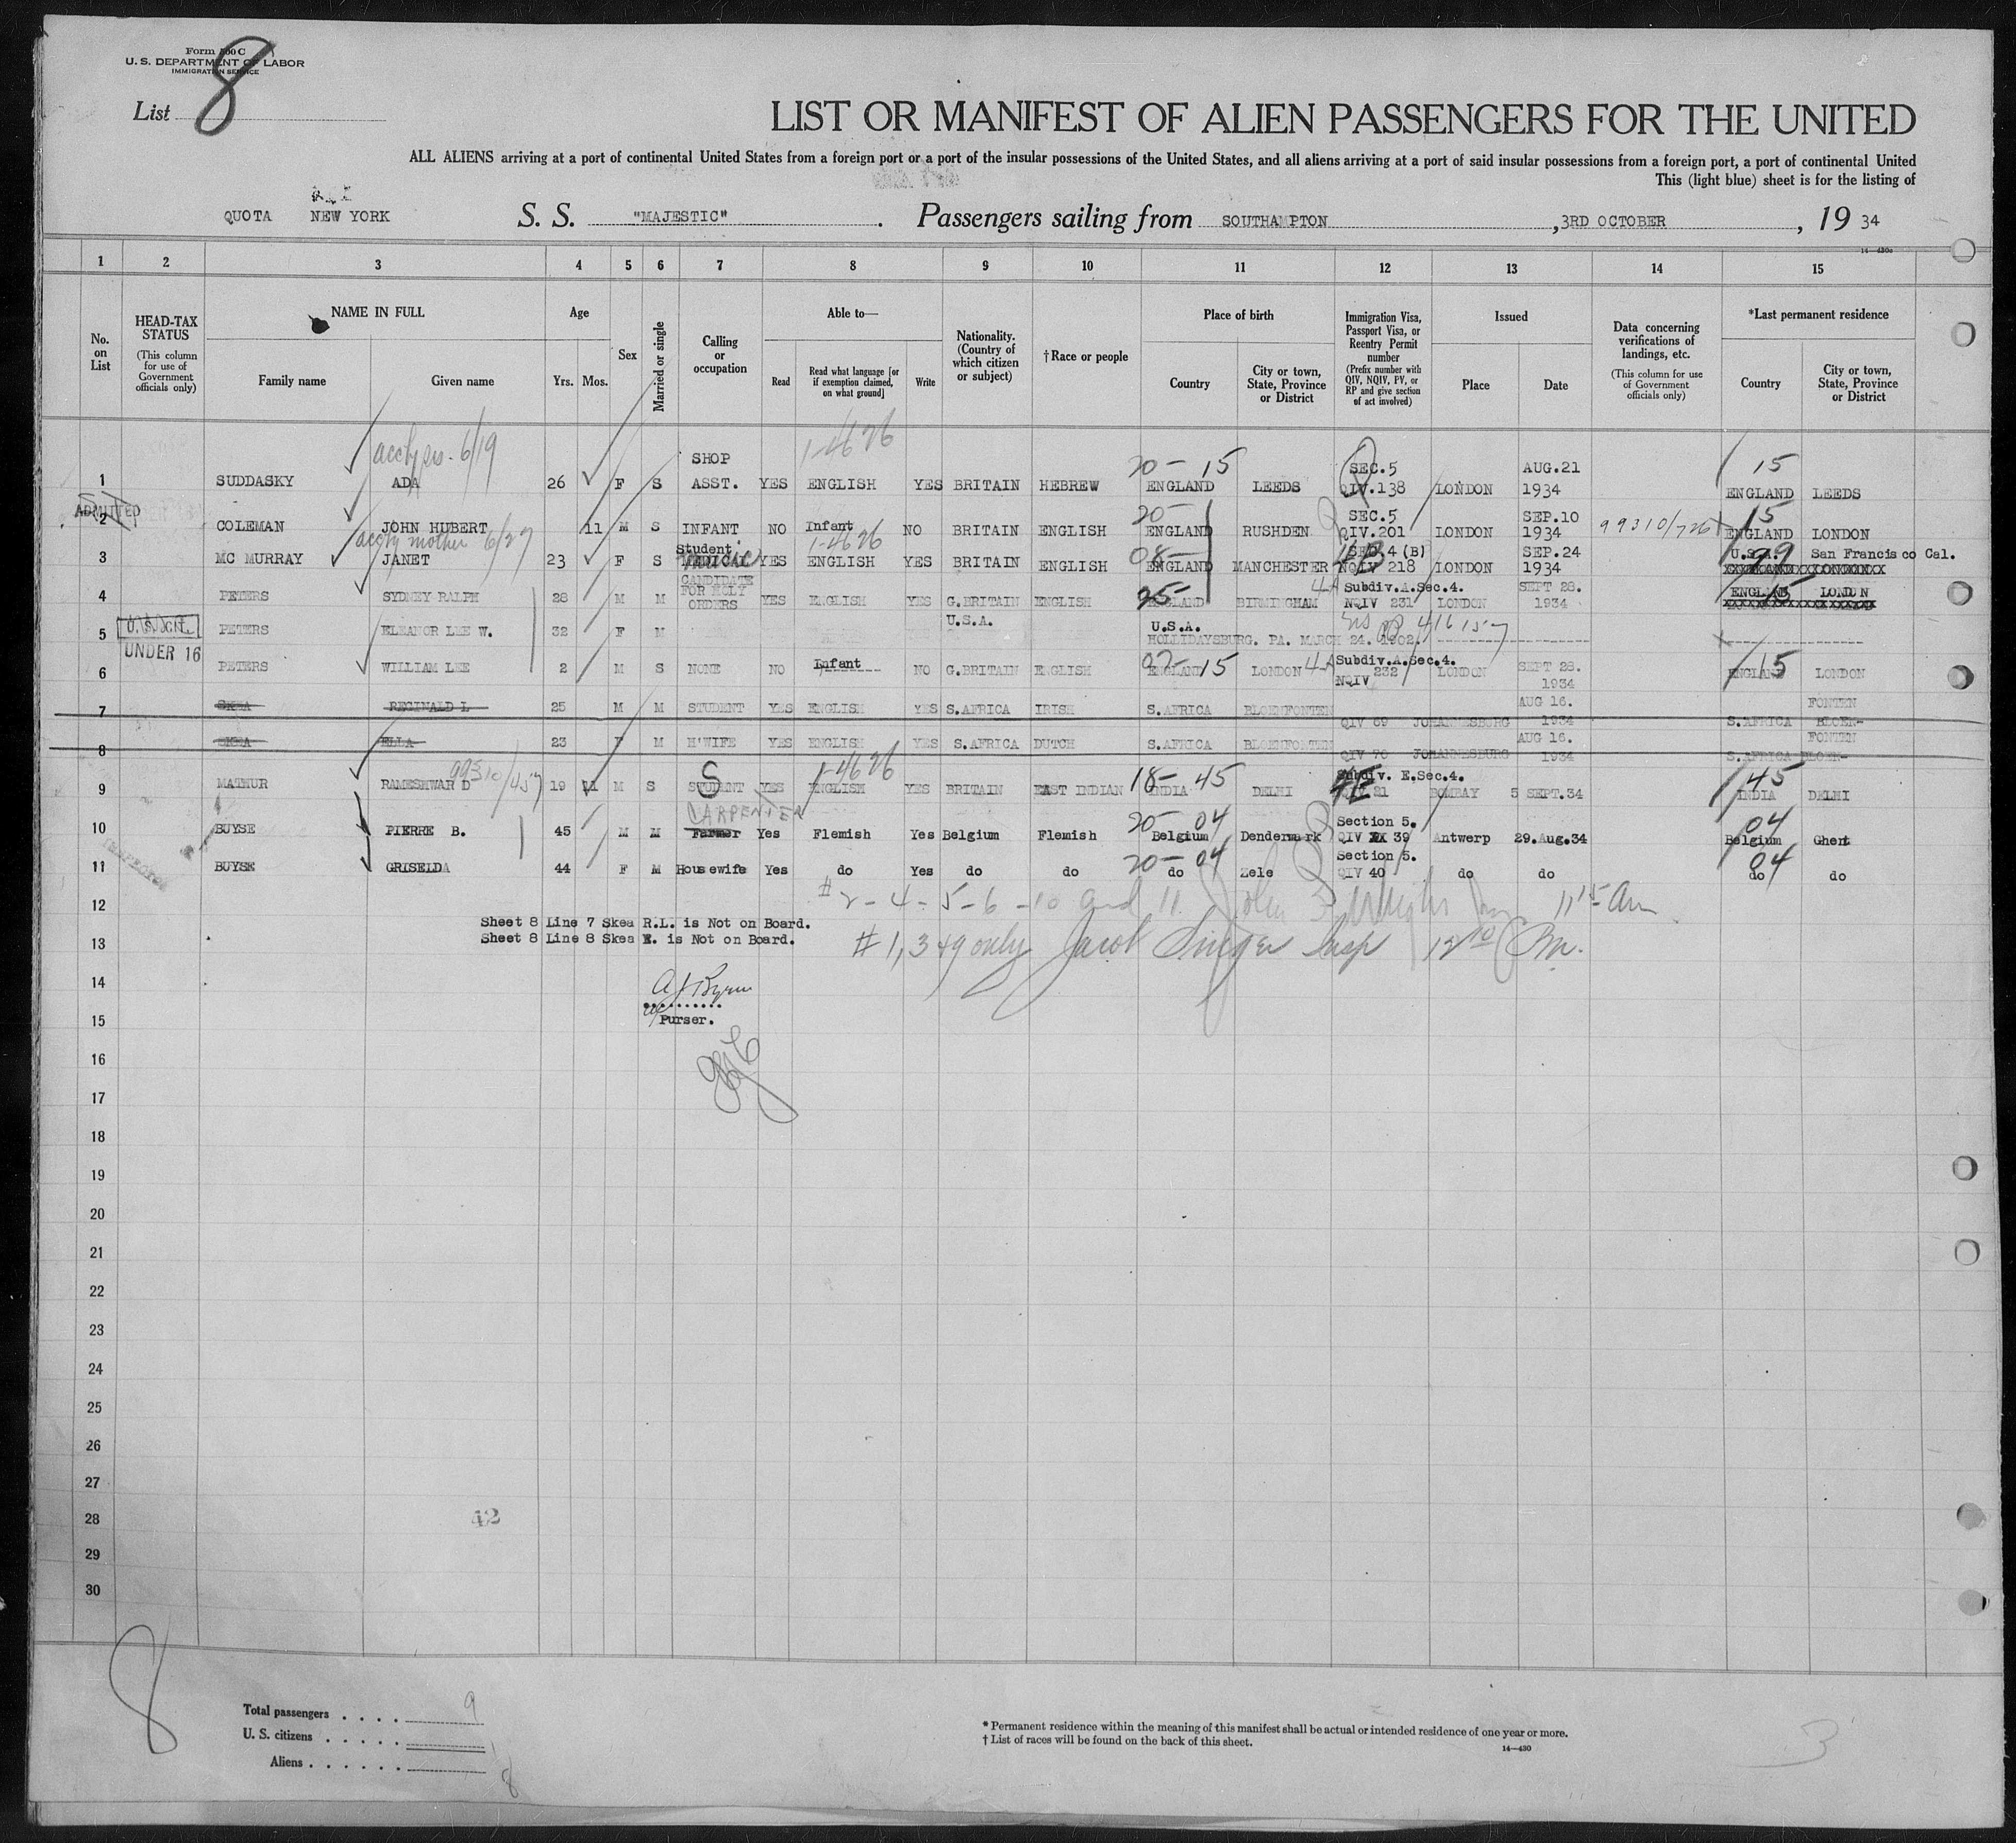 Form 500 C
U. S. DEPARTMENT OF LABOR
IMMIGRATION SERVICE
List 8
LIST OR MANIFEST OF ALIEN PASSENGERS FOR THE UNITED
ALL ALIENS arriving at a port of continental United States from a foreign port or a port of the insular possessions of the United States, and all aliens arriving at a port of said insular possessions from a foreign port, a port of continental United
This (light blue) sheet is for the listing of
QUOTA NEW YORK S. S. "MAJESTIC" . Passengers sailing from SOUTHAMPTON , 3RD OCTOBER , 19 34
14—430a
1 2 3 4 5 6 7 8 9 10 11 12 13 14 15
No. on List
HEAD-TAX STATUS (This column for use of Government officials only)
NAME IN FULL
Family name Given name
Age
Yrs. Mos.
Sex
Married or single
Calling or occupation
Able to—
Read Read what language [or if exemption claimed, on what ground] Write
Nationality. (Country of which citizen or subject)
†Race or people
Place of birth
Country City or town, State, Province or District
Immigration Visa, Passport Visa, or Reentry Permit number (Prefix number with QIV, NQIV, PV, or RP and give section of act involved)
Issued
Place Date
Data concerning verifications of landings, etc. (This column for use of Government officials only)
*Last permanent residence
Country City or town, State, Province or District
6/19 1-4626 20-15 15
1 SUDDASKY ADA 26 F S SHOP ASST. YES ENGLISH YES BRITAIN HEBREW ENGLAND LEEDS SEC.5 QIV.138 LONDON AUG.21 1934 ENGLAND LEEDS
ADMITTED
2 COLEMAN JOHN HUBERT 11 M S INFANT NO Infant NO BRITAIN ENGLISH 20- ENGLAND RUSHDEN SEC.5 QIV.201 LONDON SEP.10 1934 99310/726 15 ENGLAND LONDON
mother 6/27 1-4626
3 MC MURRAY JANET 23 F S Student MEDICAL YES ENGLISH YES BRITAIN ENGLISH 08- ENGLAND MANCHESTER SEC.4 (B) NQIV 218 LONDON SEP.24 1934 U.S.A. 99 San Francisco Cal.
4 PETERS SYDNEY RALPH 28 M M CANDIDATE FOR HOLY ORDERS YES ENGLISH YES G.BRITAIN ENGLISH 25- ENGLAND BIRMINGHAM 4-A Subdiv.A.Sec.4. NQIV 231 LONDON SEPT 28. 1934 15 ENGLAND LONDON
U.S. CIT.
5 PETERS ELEANOR LEE W. 32 F M U.S.A. U.S.A. HOLLIDAYSBURG. PA. MARCH 24. 1902
UNDER 16
6 PETERS WILLIAM LEE 2 M S NONE NO Infant NO G.BRITAIN ENGLISH 15 ENGLAND LONDON 4-A Subdiv.A.Sec.4. NQIV 232 LONDON SEPT 28. 1934 15 ENGLAND LONDON
7 SKEA REGINALD L 25 M M STUDENT YES ENGLISH YES S.AFRICA IRISH S.AFRICA BLOENFONTEN QIV 69 JOHANNESBURG AUG 16. 1934 S.AFRICA BLOEN- FONTEN
8 SKEA ELLA 23 F M H'WIFE YES ENGLISH YES S.AFRICA DUTCH S.AFRICA BLOENFONTEN QIV 70 JOHANNESBURG AUG 16. 1934 S.AFRICA BLOEN- FONTEN
1-4626
9 MATHUR RAMESHWAR D 19 11 M S S STUDENT YES ENGLISH YES BRITAIN EAST INDIAN 18-45 INDIA DELHI Subdiv. E.Sec.4. 4E 21 BOMBAY 5 SEPT.34 45 INDIA DELHI
CARPENTER
10 BUYSE PIERRE B. 45 M M Farmer Yes Flemish Yes Belgium Flemish 20-04 Belgium Dendermark Section 5. QIV 39 Antwerp 29.Aug.34 04 Belgium Ghent
11 BUYSE GRISELDA 44 F M Housewife Yes do Yes do do 20-04 do Zele Section 5. QIV 40 do do 04 do do
12 # 2-4-5-6-10 and 11 John Insp 11 15 Am
Sheet 8 Line 7 Skea R.L. is Not on Board.
Sheet 8 Line 8 Skea E. is Not on Board.
13 #1,3 & 9 only Jacob Singer Insp 12 10 Pm.
14
A J Byrne
15 Purser.
16
17
18
19
20
21
22
23
24
25
26
27
28 42
29
30
8
Total passengers . . . . 9
U. S. citizens . . . . . 1
Aliens . . . . . . 8
* Permanent residence within the meaning of this manifest shall be actual or intended residence of one year or more.
† List of races will be found on the back of this sheet.
14—430
3